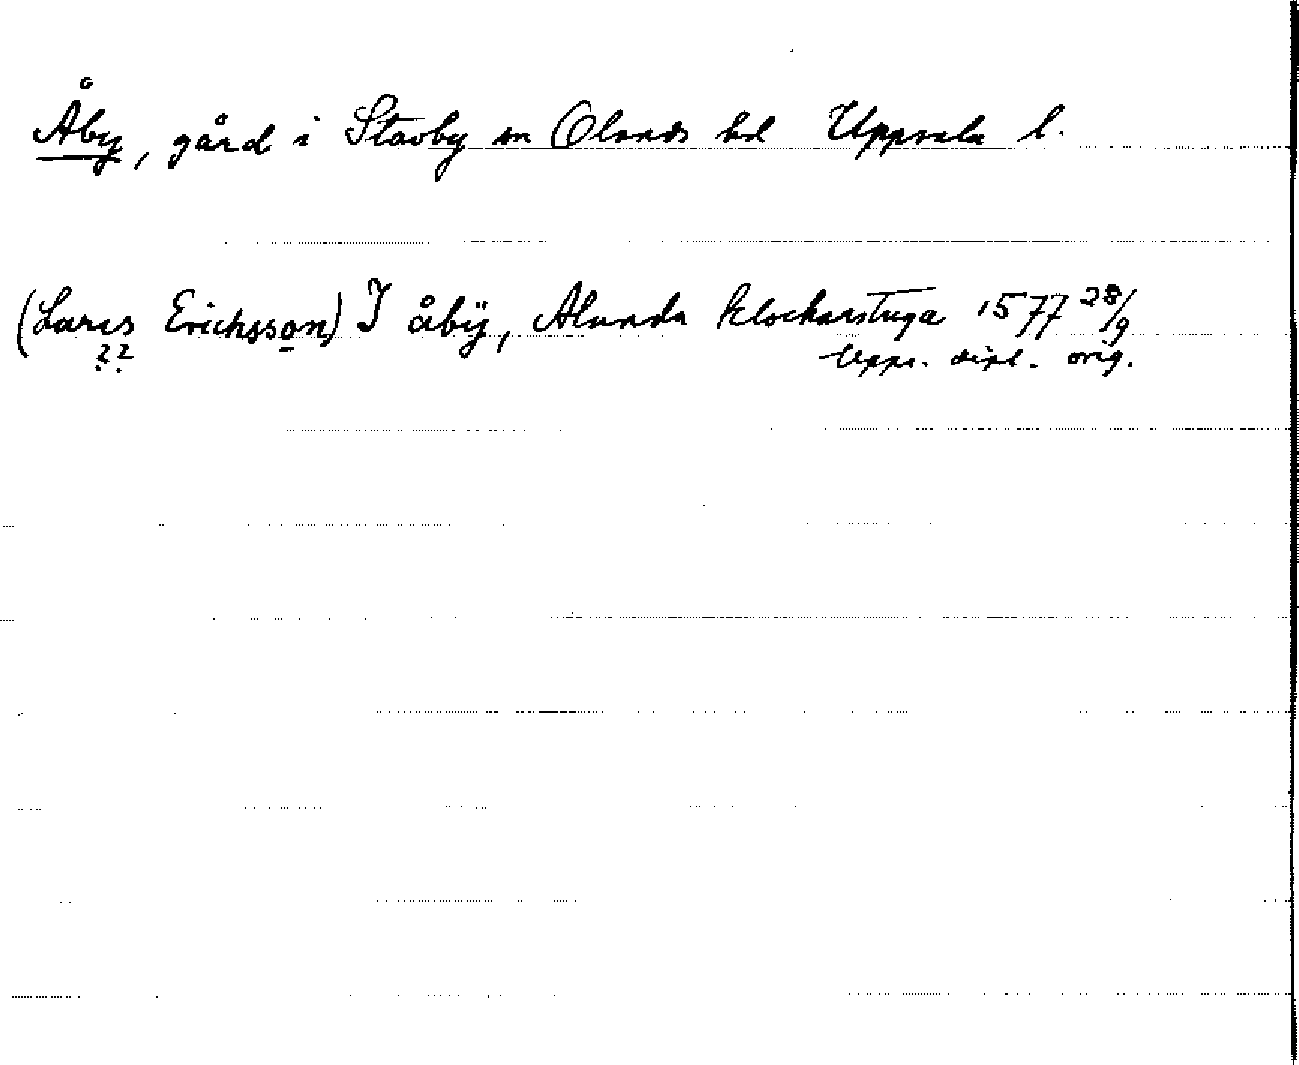 Åby, gård i Stavby sn Olands hd Uppsala l.
(Lares Erichsson) I åbÿ, Alunda klockarstuga 1577 28/9
?? Upps. dipl. orig.